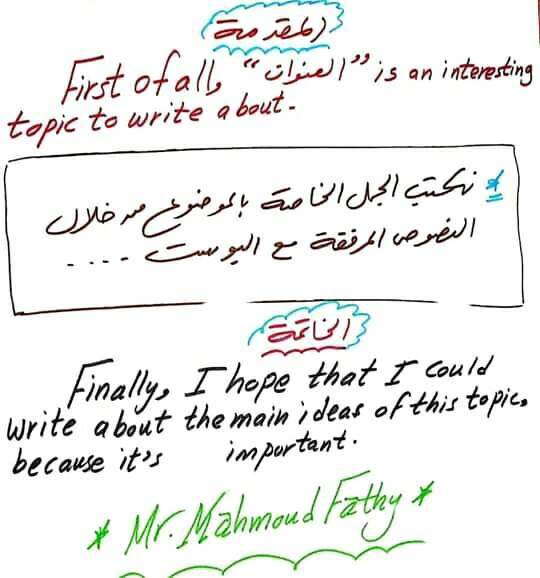 المقدمة
First of all, "العنوان" is an interesting
topic to write about.
* نكتب الجمل الخاصة بالموضوع من خلال
النصوص المرفقة مع البوست ....
الخاتمة
Finally, I hope that I could
write about the main ideas of this topic,
because it's important.
* Mr. Mahmoud Fathy *